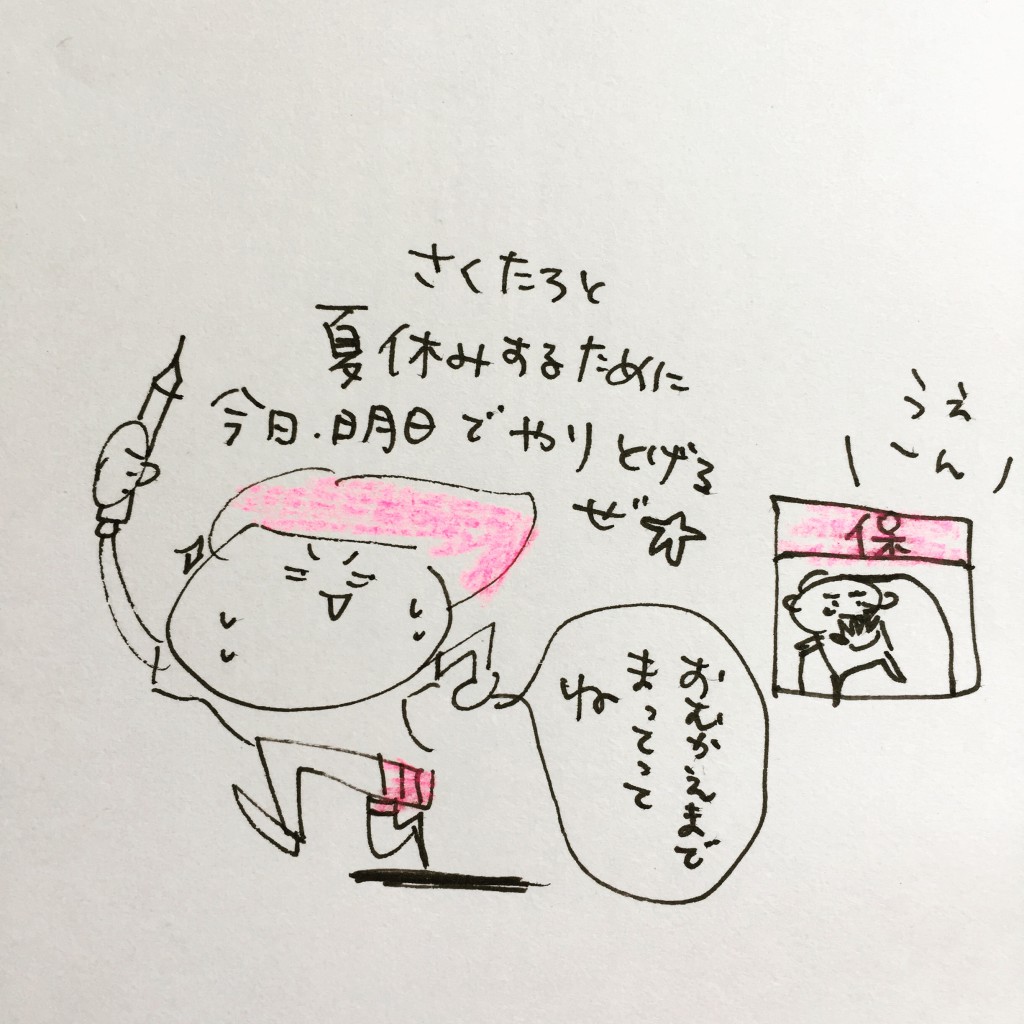 さくたろと
夏休みするために
今日.明日でやりとげる
ぜ☆
うえ
ーん
保
おむかえまで
まってって
ね